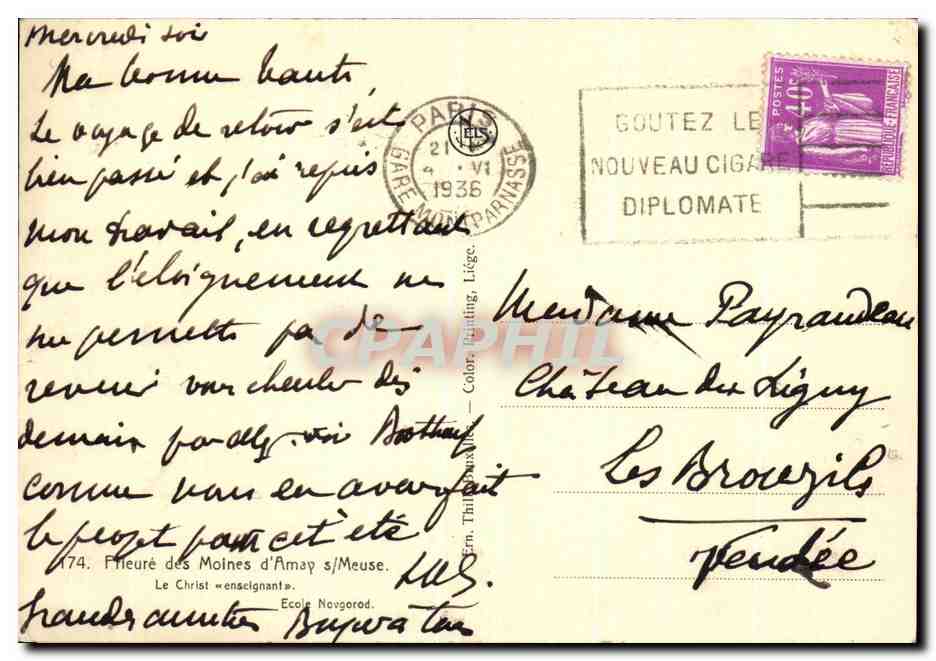 mercredi soir
Ma bonne
Le voyage de retour s'est
bien passé et j'ai repris
mon travail, en regrettant
que l'éloignement ne
me permette pas de
revenir vous chercher dès
demain pour aller voir
comme nous en avons fait
le projet pour cet été
grandes amitiés
174. Prieuré des Moines d'Amay s/Meuse.
Le Christ «enseignant».
Ecole Novgorod.
Ern. Thill, Bruxelles. — Color. Printing, Liége.
PARIS
GARE MONTPARNASSE
21
4 VI
1936
ELS
GOUTEZ LE
NOUVEAU CIGARE
DIPLOMATE
POSTES
40c
REPUBLIQUE FRANÇAISE
CPAPHIL
Madame Payraudeau
Château du Ligny
Les Brouzils
Vendée